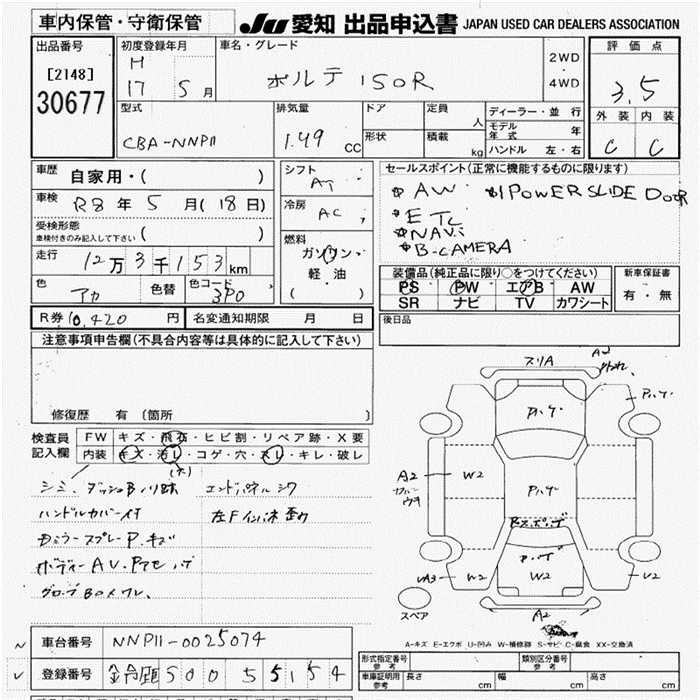 車内保管・守衛保管
JU 愛知 出品申込書 JAPAN USED CAR DEALERS ASSOCIATION
出品番号
[2148]
30677
初度登録年月
H
17 5 月
車名・グレード
ポルテ 150R
2WD
・
4WD
評価点
3.5
外装 内装
C C
型式
CBA-NNP11
排気量
1.49 CC
ドア
形状
定員
人
積載
kg
ディーラー・並行
モデル年式 年
ハンドル 左・右
車歴
自家用・( )
車検
R8 年 5 月(18日)
受検形態
車検付きのみ記入して下さい ( )
走行
12万3千153km
色
アカ
色替
色コード
3P0
シフト
AT
冷房
AC
燃料
ガソリン・
軽・油
( )
セールスポイント(正常に機能するものに限ります)
AW
POWER SLIDE DOOR
ETC
NAVi
B-CAMERA
装備品(純正品に限り○をつけてください)
PS PW エアB AW
SR ナビ TV カワシート
新車保証書
有・無
R券 10,420 円
名変通知期限 月 日
後日品
注意事項申告欄(不具合内容等は具体的に記入して下さい)
修復歴 有 〔箇所 〕
検査員
記入欄
FW キズ・飛石・ヒビ割・リペア跡・X要
内装 キズ・汚レ・コゲ・穴・スレ・キレ・破レ
シミ
ハンドルカバー付
エンドパネルシワ
スリA
A2
W2
A2
W2
W2
A2
スペア
A-キズ E-エクボ U-凹み W-補修跡 S-サビ C-腐食 XX-交換済
車台番号
NNP11-0025074
登録番号
鈴鹿 500 5 5154
形式指定番号
参考
類別区分番号
参考
車庫証明用
参考
長さ cm
幅 cm
高さ cm